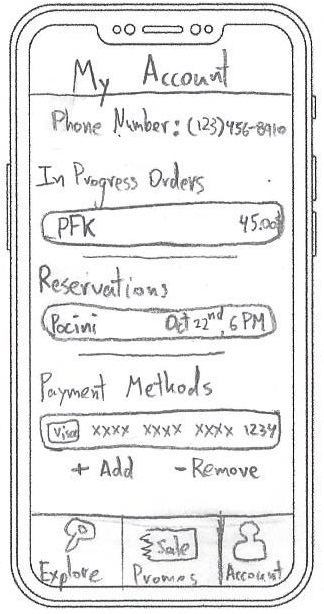 My Account
Phone Number: (123)456-8910
In Progress Orders
PFK 45.00$
Reservations
Pacini Oct 22nd, 6 PM
Payment Methods
Visa XXXX XXXX XXXX 1234
+ Add - Remove
Explore Sale Promos Account